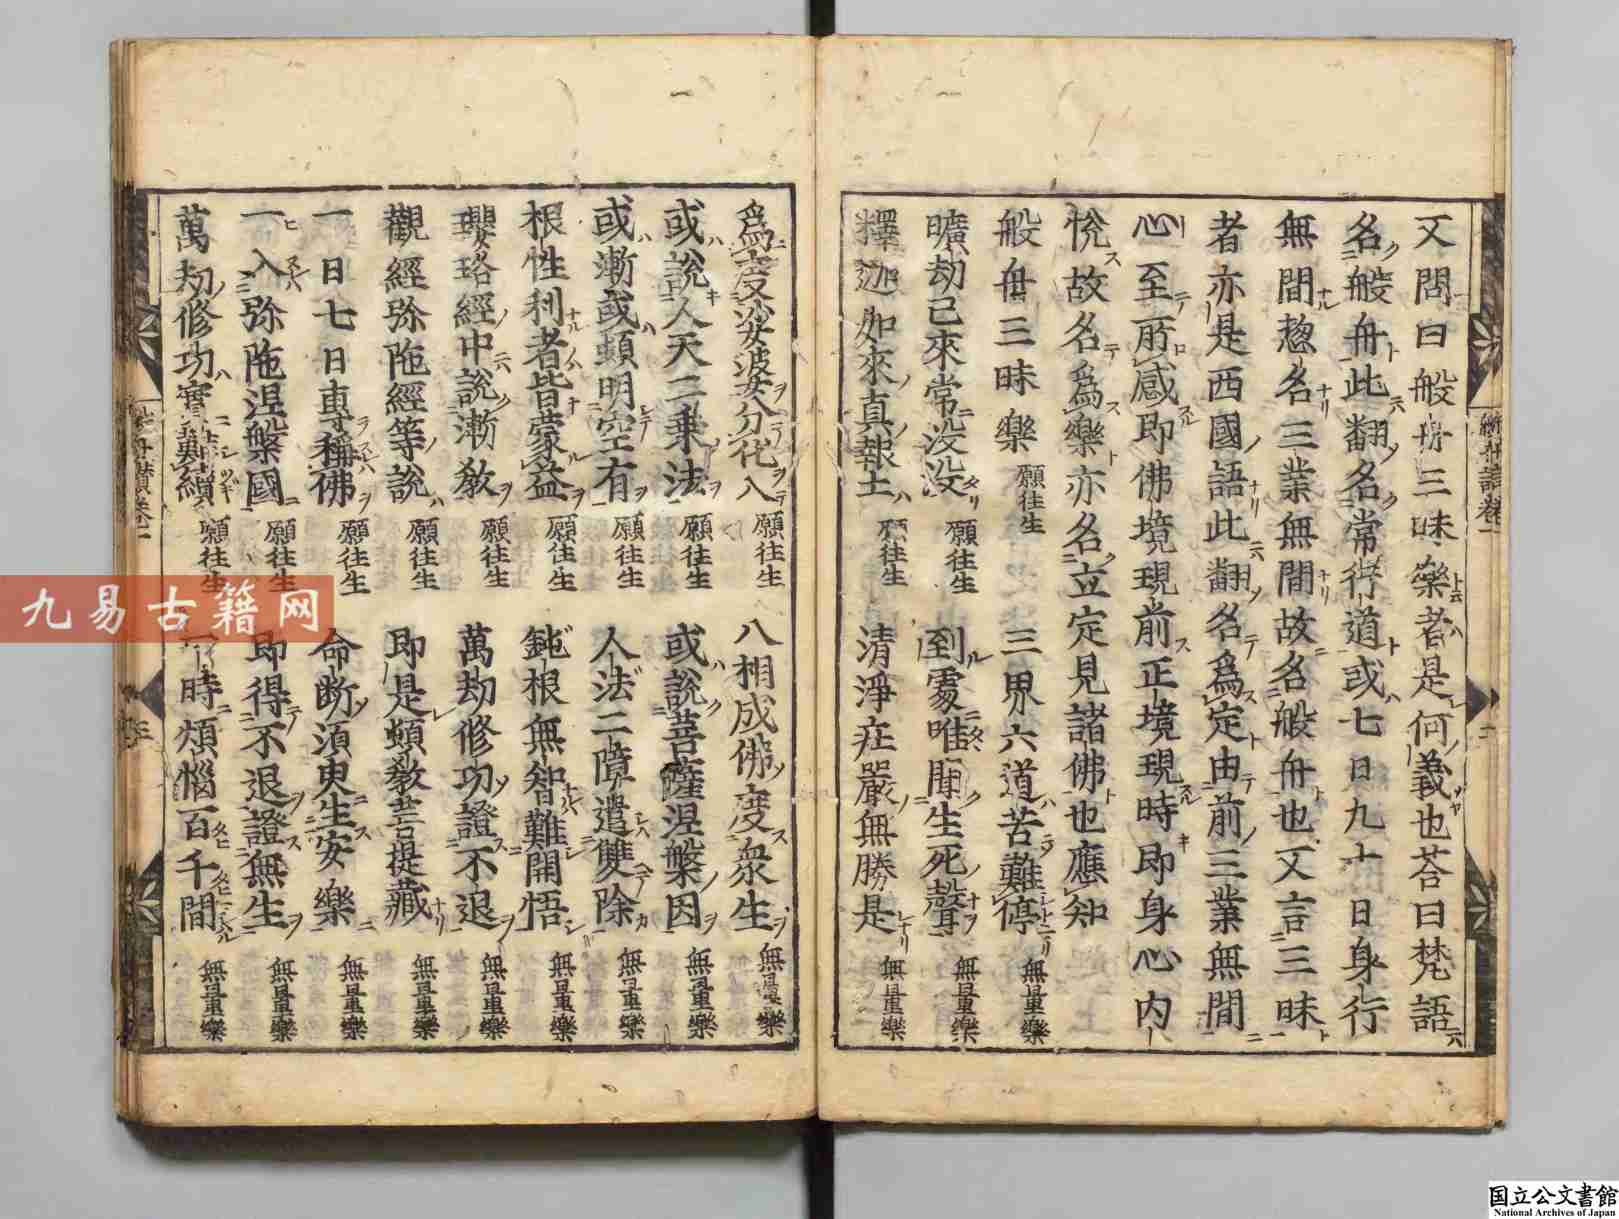 又問曰般舟三昧樂者是何義也荅曰梵語
名般舟此翻名常行道或七日九十日身行
無間揔名三業無間故名般舟也又言三昧
者亦是西國語此翻名爲定由前三業無間
心至所感即佛境現前正境現時即身心内
悅故名爲樂亦名立定見諸佛也應知
般舟三昧樂 願往生 三界六道苦難停 無量樂
曠劫已來常没没 願往生 到處唯聞生死聲 無量樂
釋迦如來真報土 願往生 清淨莊嚴無勝是 無量樂
爲度娑婆分化入 願往生 八相成佛度衆生 無量樂
或說人天二乗法 願往生 或說菩薩涅槃因 無量樂
或漸或頓明空有 願往生 人法二障遣雙除 無量樂
根性利者皆蒙益 願往生 鈍根無智難開悟 無量樂
瓔珞經中說漸教 願往生 萬劫修功證不退 無量樂
觀經弥陁經等說 願往生 即是頓教菩提藏 無量樂
一日七日專稱佛 願往生 命断須臾生安樂 無量樂
一入弥陁涅槃國 願往生 即得不退證無生 無量樂
萬劫修功實難續 願往生 一時煩惱百千間 無量樂
九易古籍网
国立公文書館
National Archives of Japan